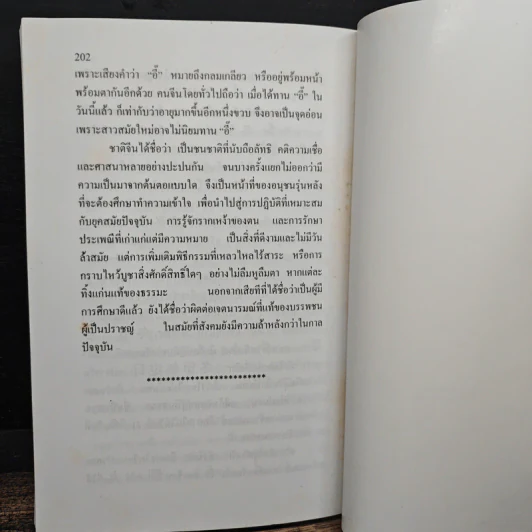 202
เพราะเสียงคำว่า “อี๊” หมายถึงกลมเกลียว หรืออยู่พร้อมหน้า
พร้อมตากันอีกด้วย คนจีนโดยทั่วไปถือว่า เมื่อได้ทาน “อี๊” ใน
วันนี้แล้ว ก็เท่ากับว่าอายุมากขึ้นอีกหนึ่งขวบ จึงอาจเป็นจุดอ่อน
เพราะสาวสมัยใหม่อาจไม่นิยมทาน “อี๊”
ชาติจีนได้ชื่อว่า เป็นชนชาติที่นับถือลัทธิ คติความเชื่อ
และศาสนาหลายอย่างปะปนกัน จนบางครั้งแยกไม่ออกว่ามี
ความเป็นมาจากต้นตอแบบใด จึงเป็นหน้าที่ของอนุชนรุ่นหลัง
ที่จะต้องศึกษาทำความเข้าใจ เพื่อนำไปสู่การปฏิบัติที่เหมาะสม
กับยุคสมัยปัจจุบัน การรู้จักรากเหง้าของตน และการรักษา
ประเพณีที่เก่าแก่แต่มีความหมาย เป็นสิ่งที่ดีงามและไม่มีวัน
ล้าสมัย แต่การเพิ่มเติมพิธีกรรมที่เหลวไหลไร้สาระ หรือการ
กราบไหว้บูชาสิ่งศักดิ์สิทธิ์ใดๆ อย่างไม่ลืมหูลืมตา หากแต่ละ
ทิ้งแก่นแท้ของธรรมะ นอกจากเสียทีที่ได้ชื่อว่าเป็นผู้มี
การศึกษาดีแล้ว ยังได้ชื่อว่าผิดต่อเจตนารมณ์ที่แท้ของบรรพชน
ผู้เป็นปราชญ์ ในสมัยที่สังคมยังมีความล้าหลังกว่าในกาล
ปัจจุบัน
**************************